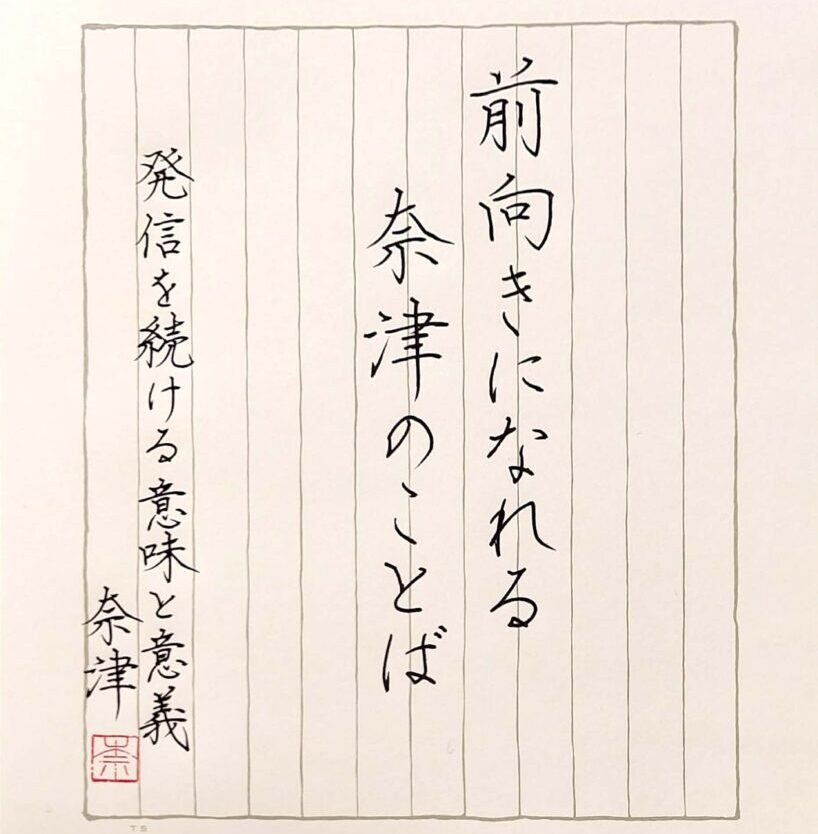 前向きになれる
奈津のことば
発信を続ける意味と意義
奈津
奈
TS